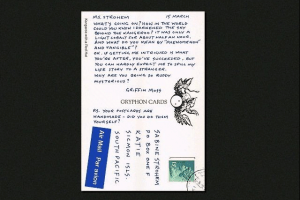 MS. STROHEM 15 MARCH
WHAT'S GOING ON? HOW IN THE WORLD
COULD YOU KNOW I DARKENED THE SKY
BEHIND THE KANGAROO? IT WAS ONLY A
LIGHT COBALT BLUE FOR ABOUT HALF AN HOUR.
AND WHAT DO YOU MEAN BY "PHENOMENON"
AND TANGIBLE"?
OK. IF GETTING ME INTRIGUED IS WHAT
YOU'RE AFTER, YOU'VE SUCCEEDED, BUT
YOU CAN HARDLY EXPECT ME TO SPILL MY
LIFE STORY TO A STRANGER.
WHY ARE YOU BEING SO RUDDY
MYSTERIOUS?
GRIFFIN MOSS
GRYPHON CARDS
PS. YOUR POSTCARDS ARE
HANDMADE - DID YOU DO THEM
YOURSELF?
Air Mail
Par avion
SABINE STROHEM
PO BOX ONE F
KATIE
SICMON ISLS.
SOUTH PACIFIC